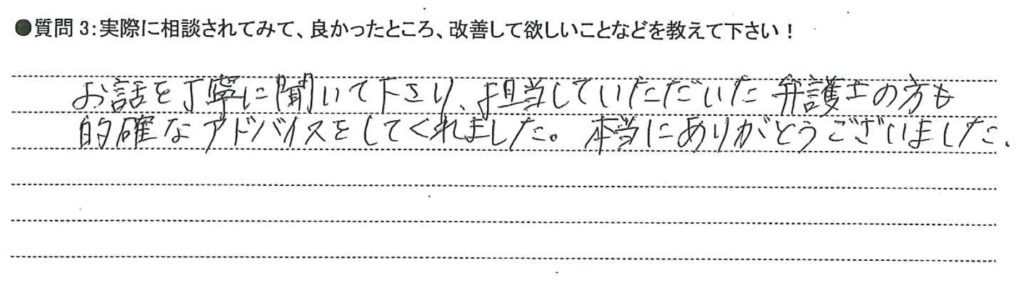 ●質問3:実際に相談されてみて、良かったところ、改善して欲しいことなどを教えて下さい!
お話を丁寧に聞いて下さり、担当していただいた弁護士の方も
的確なアドバイスをしてくれました。本当にありがとうございました。